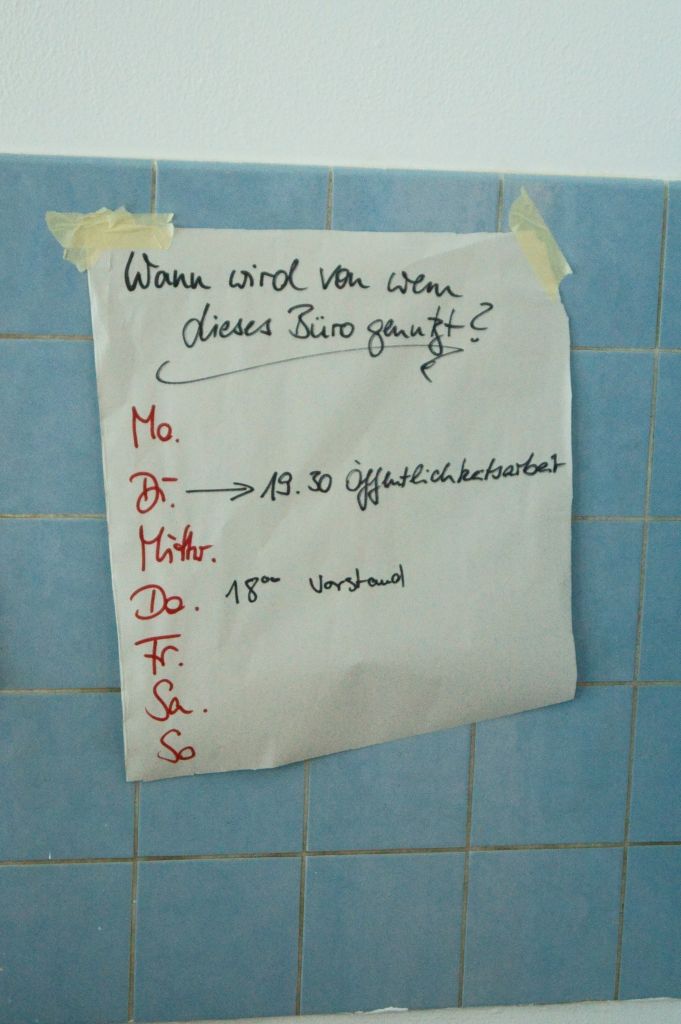 Wann wird von wem
dieses Büro genutzt?
Mo.
Di. → 19.30 Öffentlichkeitsarbeit
Mittw.
Do. 18⁰⁰ Vorstand
Fr.
Sa.
So